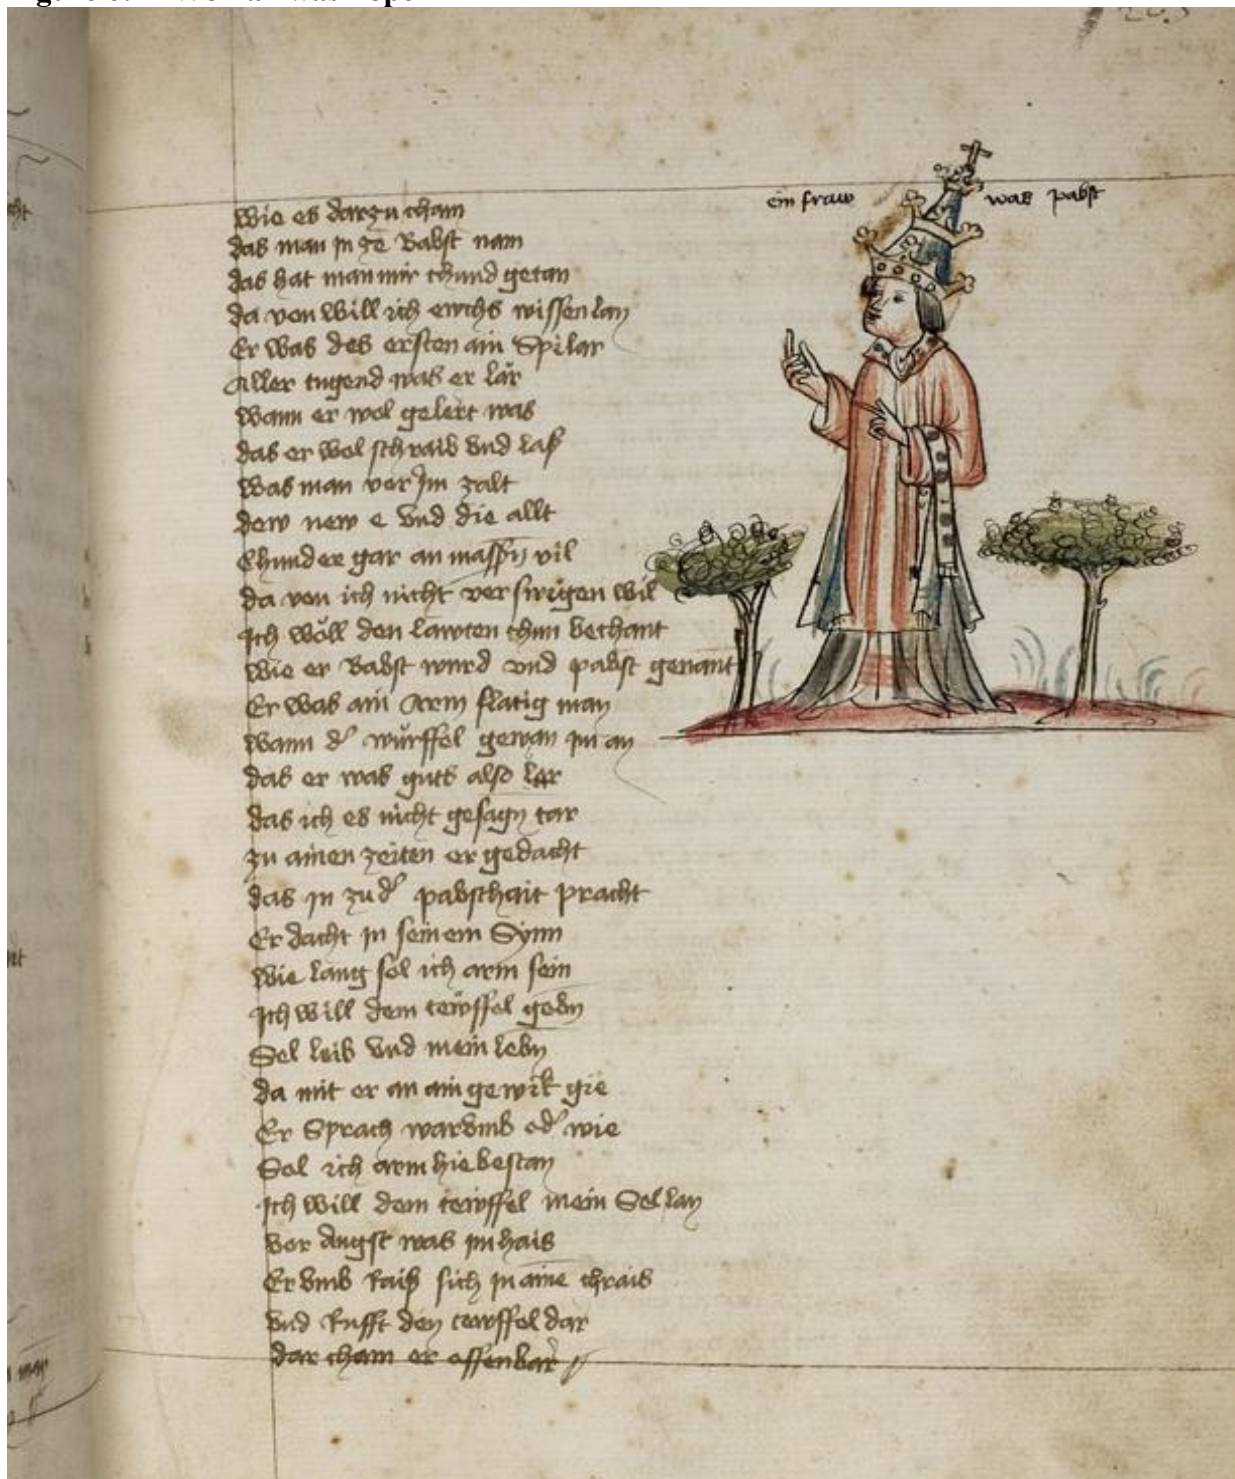 ein fraw was pabst
Wie es darzu cham
das man jn ze Babst nam
das hat man mir chund getan
da von will ich ewchs wissen lan
Er was des ersten ain Spilar
Aller tugend was er lär
wann er wol gelert was
das er wol schraib vnd las
was man vor Im zalt
dew new e vnd die allt
Chunder gar an massn vil
da von ich nicht verswigen wil
Ich wöll den lawten thun bechant
wie er Babst wurd vnd pabst genant
Er was ain Arm flatig man
wann d' würffel gewan jm an
das er was guts also ler
das ich es nicht gesagn tar
zu ainen zeiten er gedacht
das jn zu d' pabsthait pracht
Er dacht in seinem Synn
wie lang sol ich arm sein
Ich will dem tewffel gebn
Sel leib vnd mein lebn
da mit er an ain gewik gie
Er Sprach warumb od' wie
Sol ich arm hie bestan
Ich will dem tewffel mein Sel lan
vor Angst was jm hais
Er vmb Raiss sich jn aine chrais
vnd Rufft den tewffel dar
dar cham er offenbar